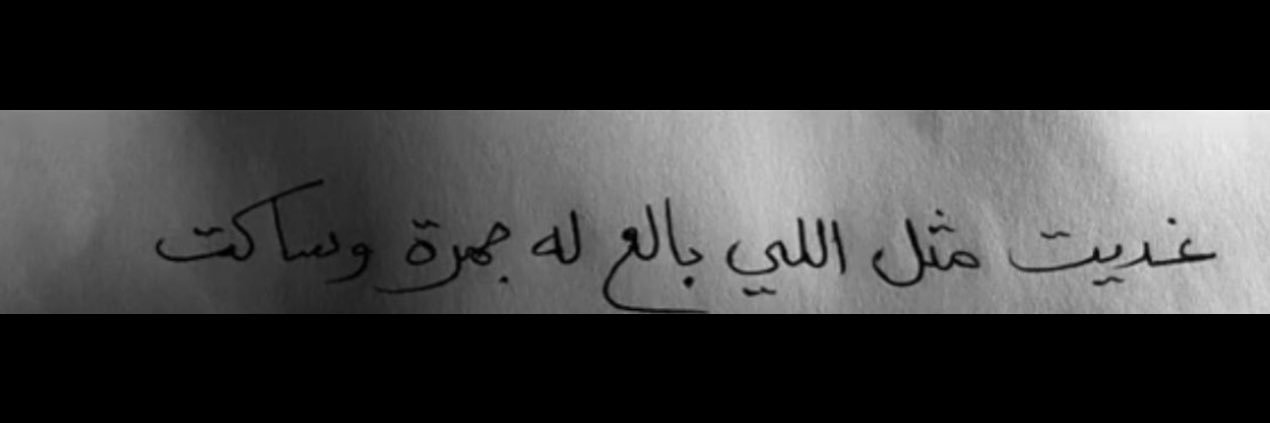 غديت مثل اللي بالع له جمرة وساكت